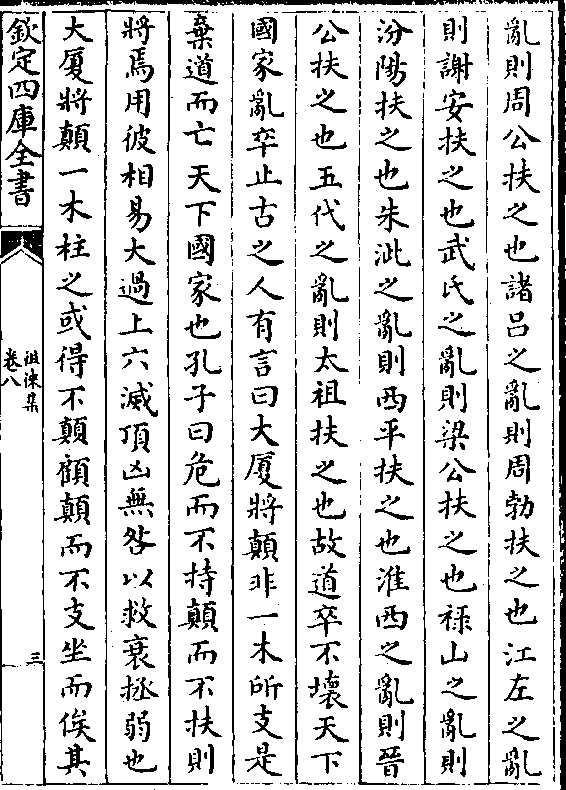 亂則周公扶之也諸吕之亂則周勃扶之也江左之亂
則謝安扶之也武氏之亂則梁公扶之也禄山之亂則
汾陽扶之也朱泚之亂則西平扶之也淮西之亂則晉
公扶之也五代之亂則太祖扶之也故道卒不壞天下
國家亂卒止古之人有言曰大厦將顛非一木所支是
棄道而亡天下國家也孔子曰危而不持顛而不扶則
將焉用彼相易大過上六滅頂凶無咎以救衰拯弱也
大厦將顛一木柱之或得不顛顧顛而不支坐而俟其
欽定四庫全書
徂徠集
卷八
三